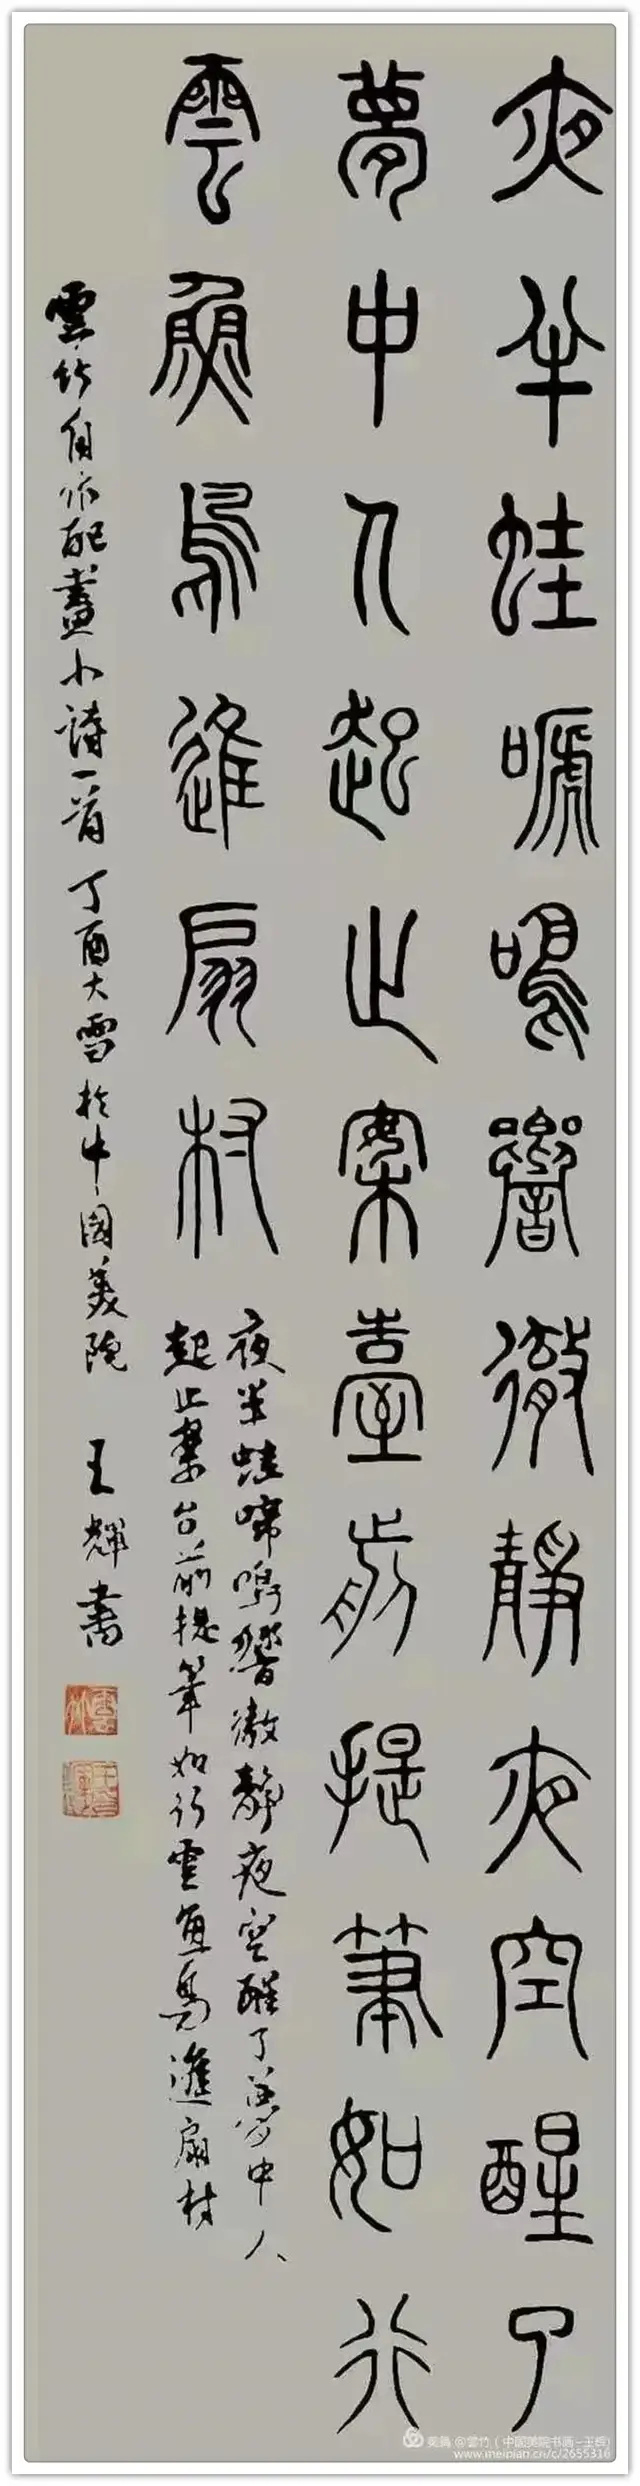 夜半蛙嗁鳴響徹靜夜空醒了
夢中人起止案臺前提筆如行
雲魚鳥進扇村
夜半蛙啼鳴響徹靜夜空醒了夢中人
起止案台前提筆如行雲魚鳥進扇村
雲竹自作配畫小詩一首丁酉大雪於中國美院 王輝書
美篇 @雲竹（中国美院书画-王辉）
www.meipian.cn/c/2655316